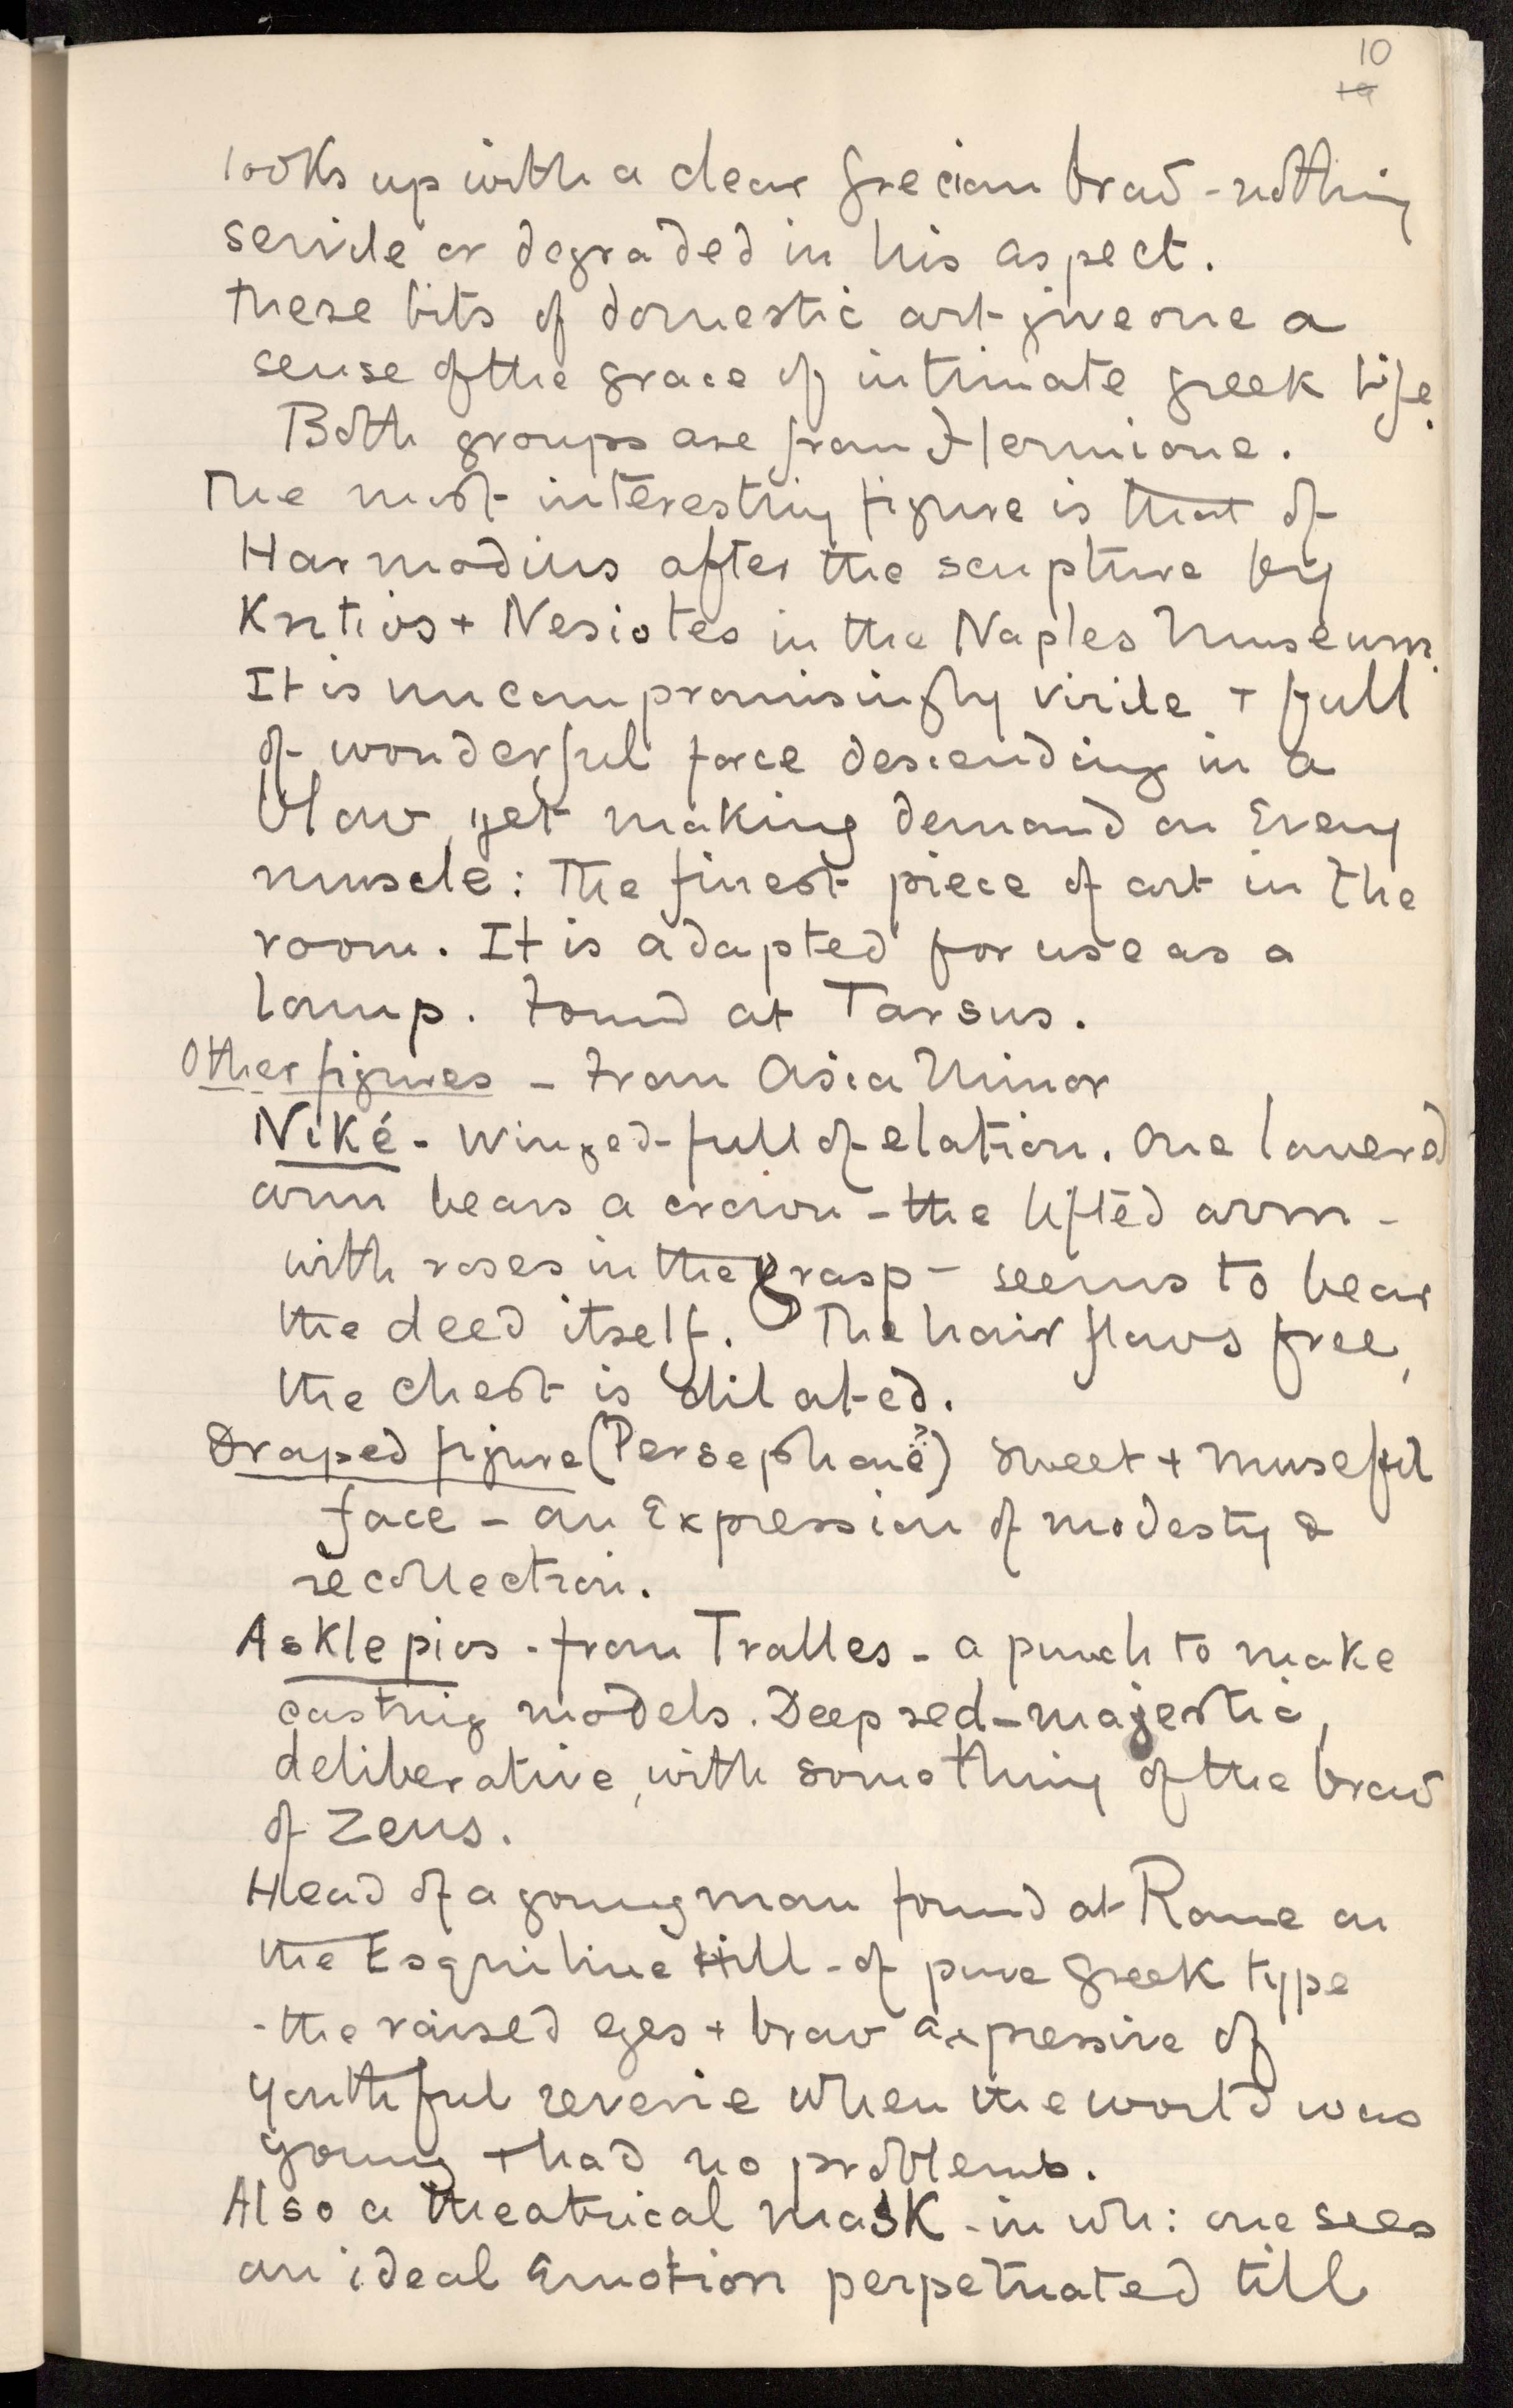 10
19
looks up with a clear Grecian brow - nothing
servile or degraded in his aspect.
These bits of domestic art give one a
sense of the grace of intimate greek life.
Both groups are from Hermione.
The most interesting figure is that of
Harmodius after the scupture by
Kritios + Nesiotes in the Naples Museum.
It is uncompromisingly virile + full
of wonderful force descending in a
blow, yet making demand on Every
muscle: The finest piece of art in the
room. It is adapted for use as a
lamp. Found at Tarsus.
Other figures - From Asia Minor
Niké - Winged - full of elation. One lowered
arm bears a crown - the lifted arm -
with roses in the grasp - seems to bear
the deed itself. The hair flows free,
the chest is dilated.
Draped figure (Persephone?) Sweet + museful
face - an Expression of modesty &
recollection.
Asklepios - from Tralles - a punch to make
casting models. Deep red - majestic,
deliberative, with something of the brow
of Zeus.
Head of a young man found at Rome on
the Esquiline Hill - of pure Greek type
- the raised eyes + brow expressive of
youthful reverie when the world was
young + had no problems.
Also a theatrical mask - in wh: one sees
an ideal Emotion perpetuated till